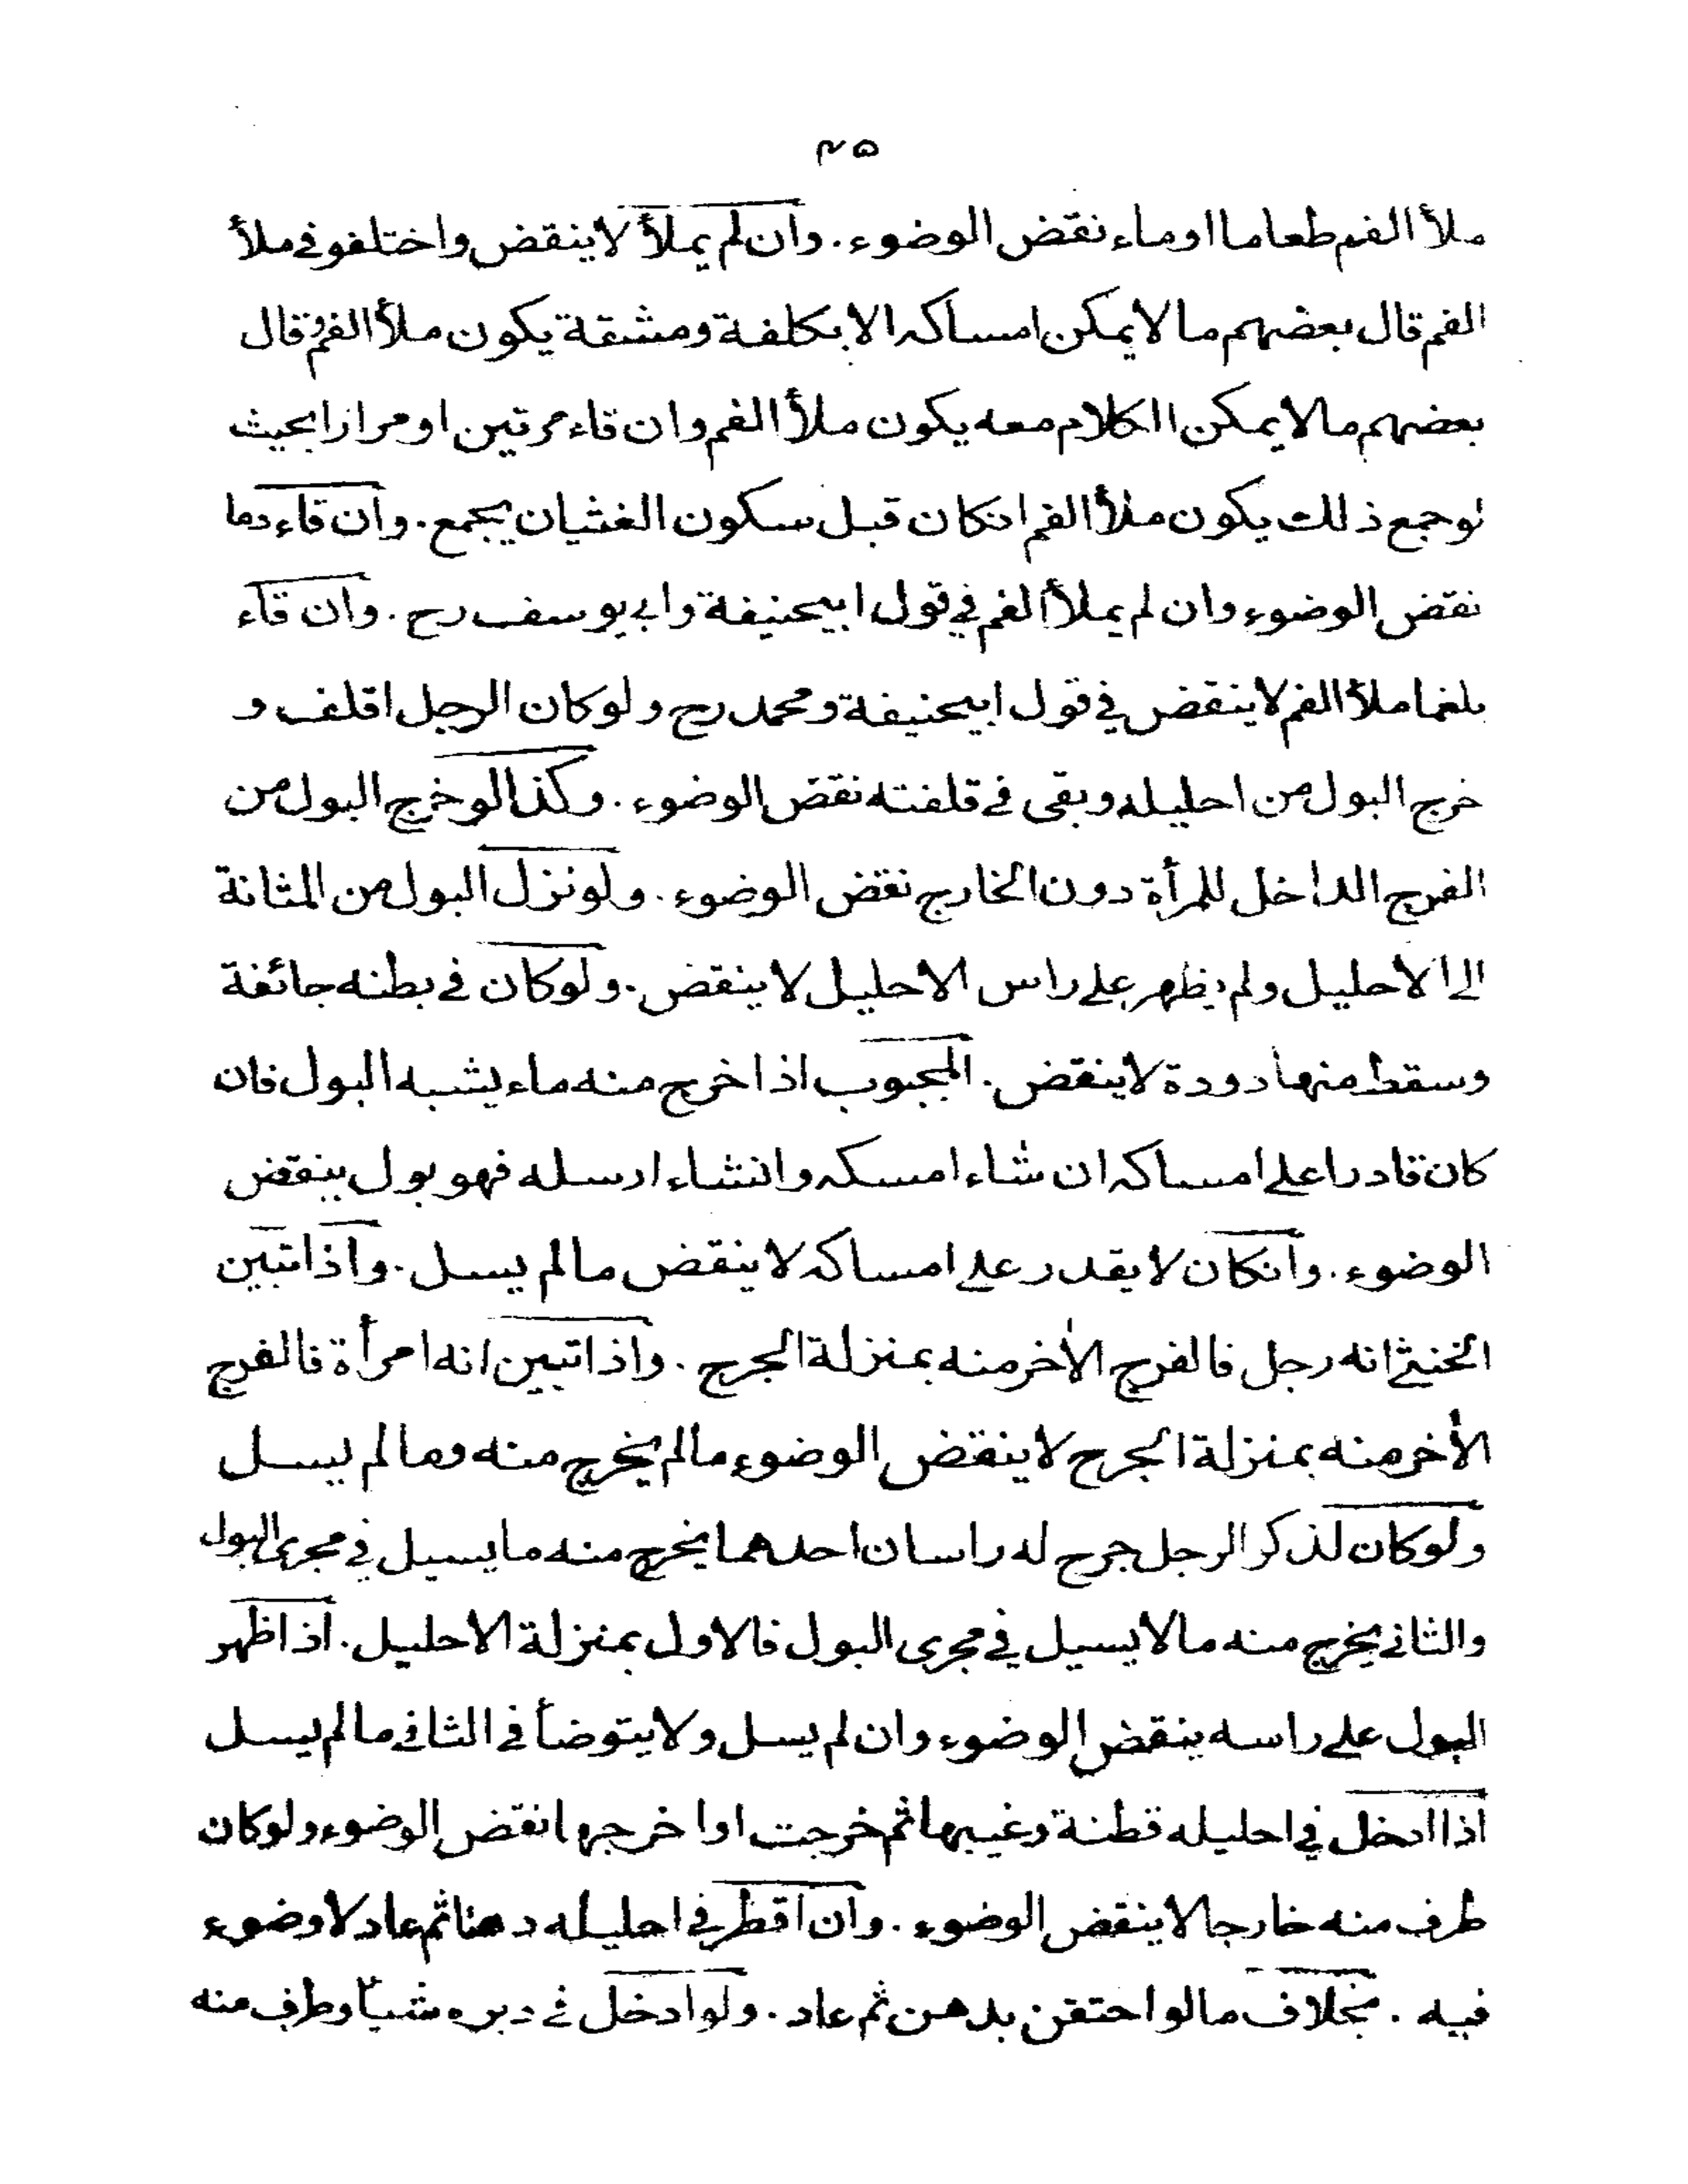 ٢۵
ملأ الفم طعاما اوماء نقض الوضوء. وان لم يملأ لاينقض واختلفو في ملأ
الفم قال بعضهم ما لايمكن امساكه الا بكلفة ومشقة يكون ملأ الفم وقال
بعضهم مالايمكن الكلام معه يكون ملأ الفم وان قاء مرتين او مرارا بحيث
لوجمع ذلك يكون ملأ الفم انكان قبل سكون الغثيان يجمع. وان قاء دما
نقض الوضوء وان لم يملأ الفم في قول ابيحنيفة وابي يوسف رح. وان قاء
بلغما ملأ الفم لاينقض في قول ابيحنيفة ومحمد رح ولوكان الرجل اقلف و
خرج البول من احليله وبقى في قلفته نقض الوضوء. وكذا لوخرج البول من
الفرج الداخل للمرأة دون الخارج نقض الوضوء. ولونزل البول من المثانة
الى الاحليل ولم يظهر على راس الاحليل لاينقض. ولوكان في بطنه جائفة
وسقط منها دودة لاينقض. المجبوب اذا خرج منه ماء يشبه البول فان
كان قادرا على امساكه ان شاء امسكه وانشاء ارسله فهو بول ينقض
الوضوء. وانكان لايقدر على امساكه لاينقض مالم يسل. واذا تبين
الخنثى انه رجل فالفرج الأخر منه بمنزلة الجرح. واذا تبين انه امرأة فالفرج
الأخر منه بمنزلة الجرح لاينقض الوضوء مالم يخرج منه وما لم يسل
ولوكان لذكر الرجل جرح له راسان احدهما يخرج منه مايسيل في مجرى البول
والثاني يخرج منه مالايسيل في مجرى البول فالاول بمنزلة الاحليل. اذا ظهر
البول على راسه ينقض الوضوء وان لم يسل ولايتوضأ في الثاني مالم يسل
اذا ادخل في احليله قطنة وغيبها ثم خرجت او اخرجها نقض الوضوء ولوكان
طرف منه خارجا لاينقض الوضوء. وان اقطر في احليله دهنا ثم عاد لاوضوء
فيه. بخلاف مالو احتقن بدهن ثم عاد. ولو ادخل في دبره شيأ وطرف منه